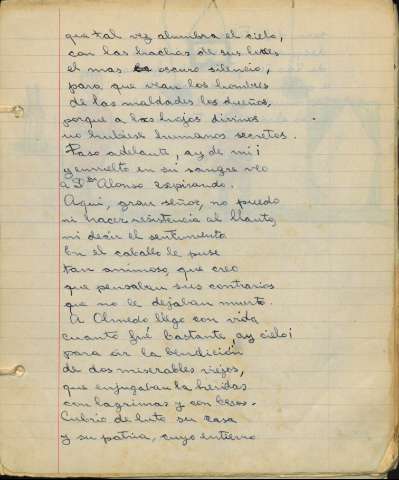 que tal vez alumbra el cielo,
con las hachas de sus luces
el mas oscuro silencio,
para que vean los hombres
de las maldades los dueños,
porque a los hojos divinos
no hubiese humanos secretos.
Paso adelante, ay de mi¡
y envuelto en su sangre veo
a Don Alonso expirando.
Aqui, gran señor, no puedo
ni hacer resistencia al llanto,
ni decir el sentimento
En el caballo le puse
tan animoso, que creo
que pensaban sus contrarios
que no le dejaban muerto.
A Olmedo llego con vida
cuanto fué bastante, ay cielo¡
para oir la bendición
de dos miserables viejos,
que enjugaban la heridas
con lagrimas y con besos.
Cubrio de luto su casa
y su patria, cuyo entierro